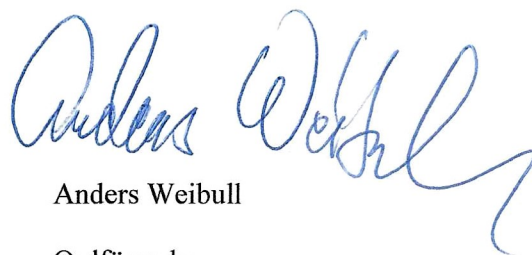 Anders Weibull
Anders Weibull